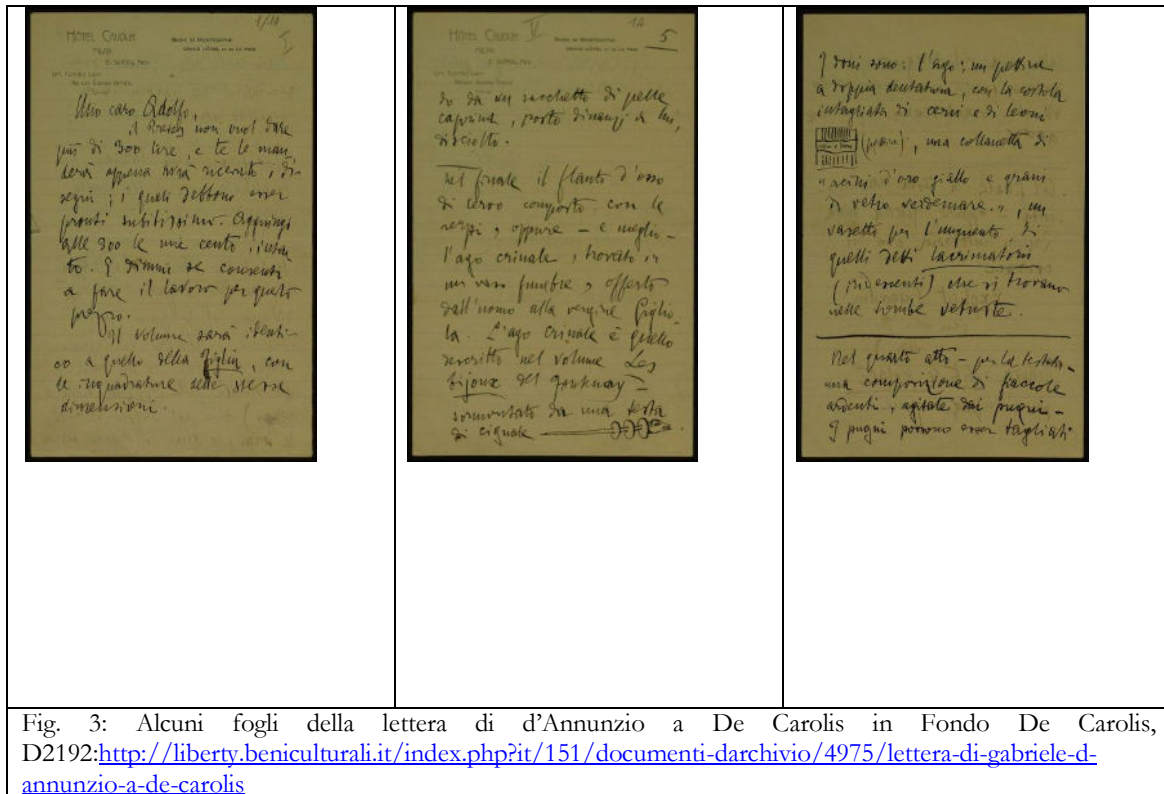 1/10
I
HÔTEL CAVOUR
MILAN
Mio caro Adolfo,
il Treves non vuol dare
più di 300 lire, e te le man
derà appena avrà ricevuto i di-
segni; i quali debbono esser
pronti subitissimo. Aggiungi
alle 300 le mie cento, intan
to. E dimmi se consenti
a fare il lavoro per questo
prezzo.
Il volume sarà identi-
co a quello della Figlia, con
le inquadrature delle stesse
dimensioni.
HÔTEL CAVOUR
MILAN
IV
5
do da un sacchetto di pelle
caprina, posto dinanzi a lui,
disciolto.
Nel finale il flauto d'osso
di cervo composto con le
serpi, oppure – e meglio –
l'ago crinale, trovato in
un vaso funebre, offerto
dall'uomo alla vergine Giglio
la. L'ago crinale è quello
descritto nel volume Les
bijoux del Fontenay –
sormontato da una testa
di cignale
I doni sono: l'ago; un pettine
a doppia dentatura, con la costola
intagliata di cervi e di leoni
una collanetta di
"acini d'oro giallo e grani
di vetro verdemare.", un
vasetto per l'unguento, di
quelli detti lacrimatorii
(iridescenti) che si trovano
nelle tombe vetuste.
Nel quarto atto – per la testata –
una composizione di fiaccole
ardenti, agitate dai pugni –
I pugni possono esser tagliati
Fig. 3: Alcuni fogli della lettera di d'Annunzio a De Carolis in Fondo De Carolis,
D2192:http://liberty.beniculturali.it/index.php?it/151/documenti-darchivio/4975/lettera-di-gabriele-d-
annunzio-a-de-carolis